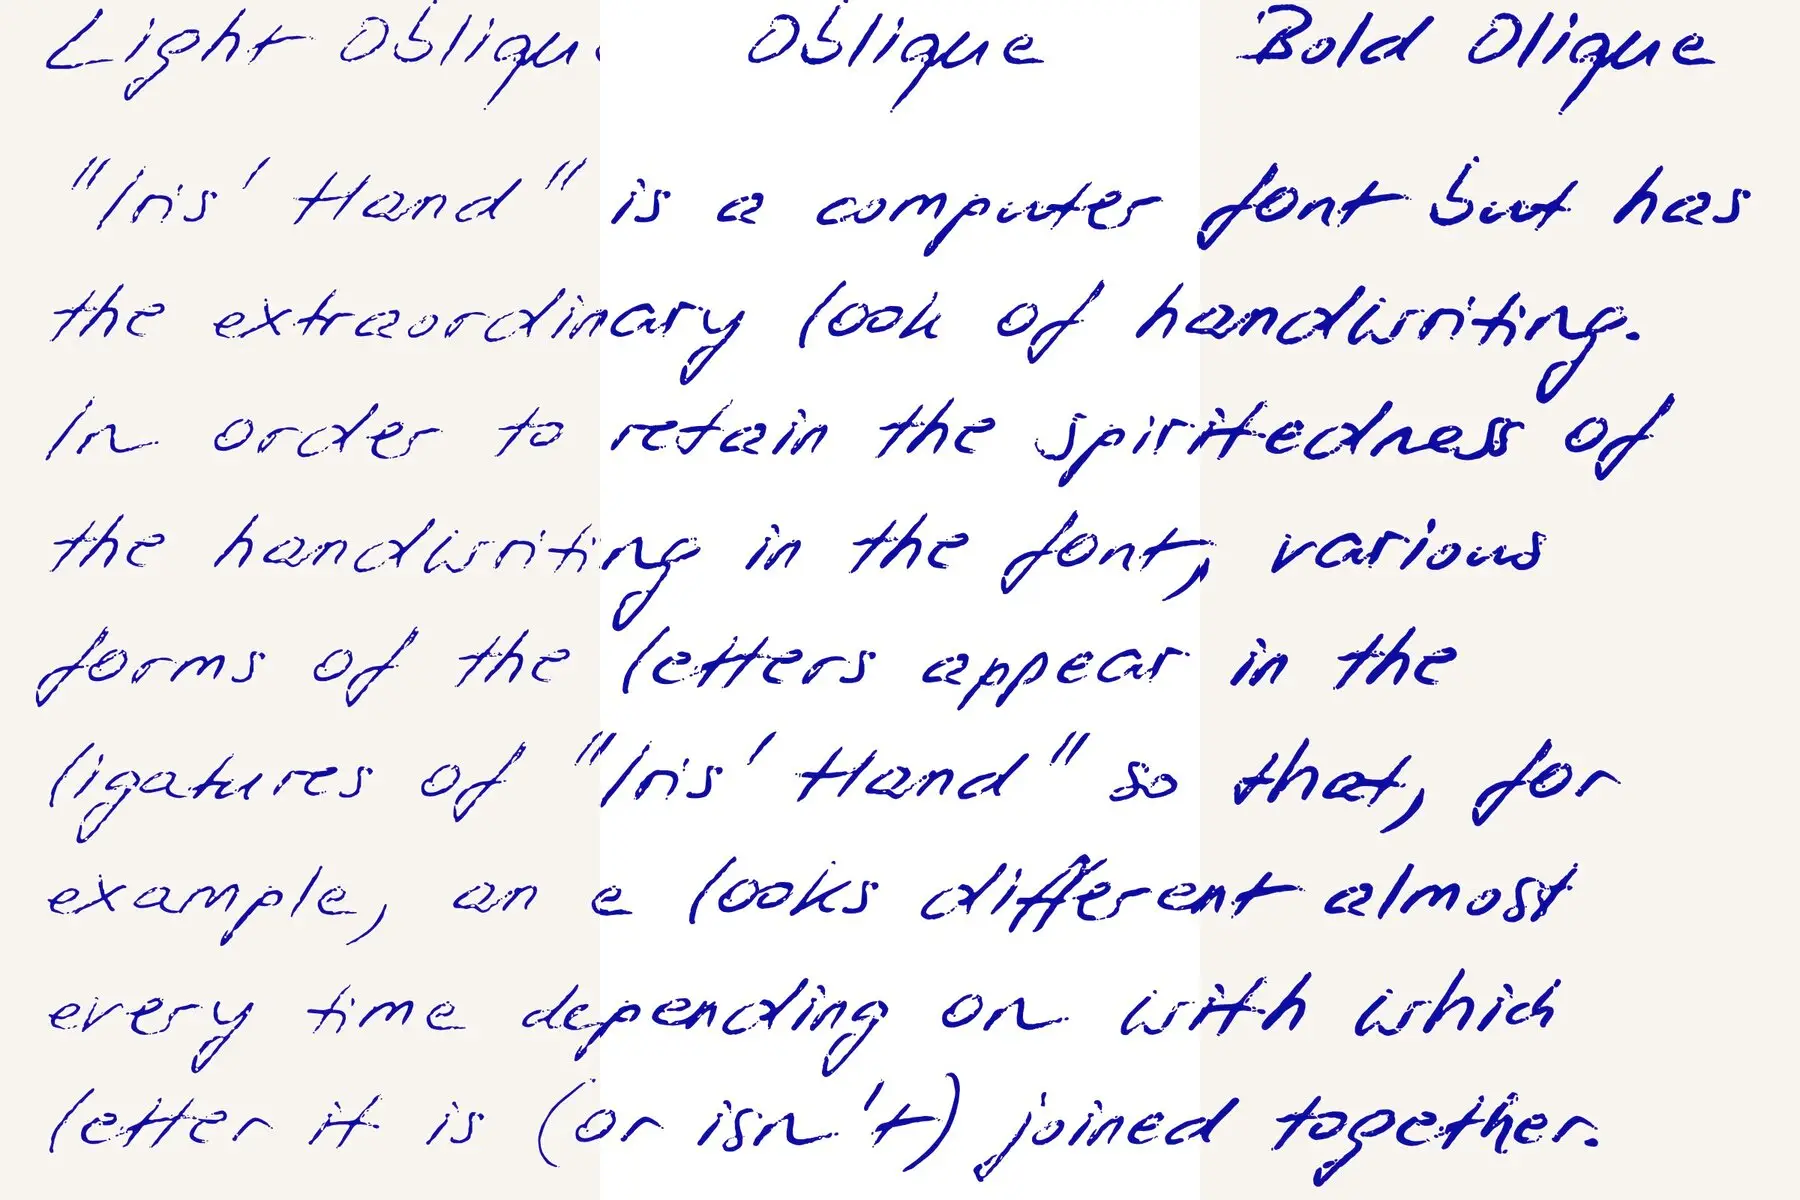 Light Oblique Oblique Bold Olique
"Iris' Hand" is a computer font but has
the extraordinary look of handwriting.
In order to retain the spiritedness of
the handwriting in the font, various
forms of the letters appear in the
ligatures of "Iris' Hand" so that, for
example, an e looks different almost
every time depending on with which
letter it is (or isn't) joined together.